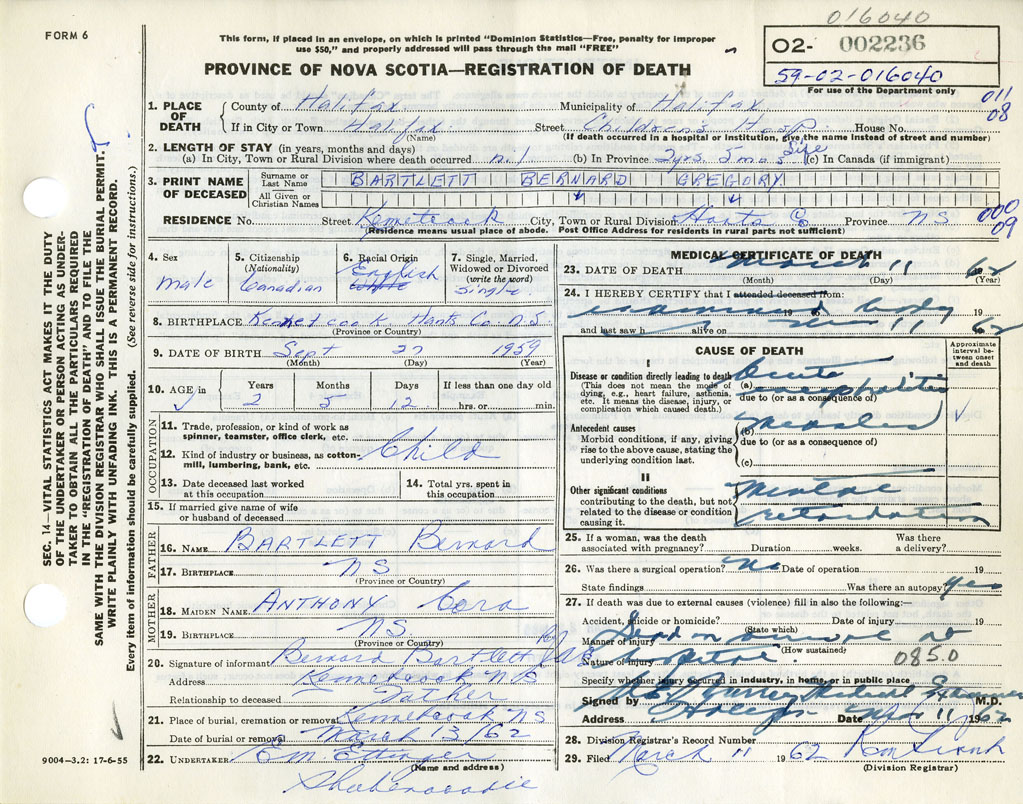 016040
FORM 6
This form, if placed in an envelope, on which is printed "Dominion Statistics—Free, penalty for improper
use $50," and properly addressed will pass through the mail "FREE"
O2- 002236
59-02-016040
For use of the Department only
PROVINCE OF NOVA SCOTIA—REGISTRATION OF DEATH
011
08
1. PLACE OF DEATH { County of Halifax Municipality of Halifax
If in City or Town Halifax Street Childrens Hosp House No.
(Name) (If death occurred in a hospital or institution, give the name instead of street and number)
2. LENGTH OF STAY (in years, months and days)
(a) In City, Town or Rural Division where death occurred (b) In Province 2yrs. 5mos (c) In Canada (if immigrant)
3. PRINT NAME OF DECEASED { Surname or Last Name BARTLETT BERNARD GREGORY
All Given or Christian Names
RESIDENCE No. Street Kennetcook City, Town or Rural Division Hants Co Province NS
000
09
(Residence means usual place of abode. Post Office Address for residents in rural parts not sufficient)
4. Sex
male
5. Citizenship
(Nationality)
Canadian
6. Racial Origin
English
White
7. Single, Married,
Widowed or Divorced
(write the word)
Single
8. BIRTHPLACE Kennetcook Hants Co NS
(Province or Country)
9. DATE OF BIRTH Sept 27 1959
(Month) (Day) (Year)
10. AGE in Years Months Days If less than one day old
2 5 12 hrs. or min.
OCCUPATION
11. Trade, profession, or kind of work as
spinner, teamster, office clerk, etc.
12. Kind of industry or business, as cotton-
mill, lumbering, bank, etc.
Child
13. Date deceased last worked
at this occupation
14. Total yrs. spent in
this occupation
15. If married give name of wife
or husband of deceased
FATHER
16. NAME BARTLETT Bernard
17. BIRTHPLACE NS
(Province or Country)
MOTHER
18. MAIDEN NAME ANTHONY Cora
19. BIRTHPLACE NS
(Province or Country)
20. Signature of informant Bernard Bartlett
Address Kennetcook NS
Relationship to deceased Father
21. Place of burial, cremation or removal Kennetcook NS
Date of burial or removal March 13/62
22. UNDERTAKER E.M. Ettinger
(Name and address)
Shubenacadie
MEDICAL CERTIFICATE OF DEATH
23. DATE OF DEATH March 11 62
(Month) (Day) (Year)
24. I HEREBY CERTIFY that I attended deceased from:
examined body 19
and last saw h alive on 11 62
CAUSE OF DEATH
Approximate
interval be-
tween onset
and death
I
Disease or condition directly leading to death
(This does not mean the mode of
dying, e.g., heart failure, asthenia,
etc. It means the disease, injury, or
complication which caused death.)
(a) Acute encephalitis
due to (or as a consequence of)
Antecedent causes
Morbid conditions, if any, giving
rise to the above cause, stating the
underlying condition last.
(b) Measles
due to (or as a consequence of)
(c)
II
Other significant conditions
contributing to the death, but not
related to the disease or condition
causing it.
Mental
retardation
25. If a woman, was the death
associated with pregnancy? Duration weeks. Was there
a delivery?
26. Was there a surgical operation? No Date of operation 19
State findings Was there an autopsy? yes
27. If death was due to external causes (violence) fill in also the following:—
Accident, suicide or homicide? Date of injury 19
(State which)
Manner of injury Dead on arrival at
(How sustained)
Nature of injury hospital 085.0
Specify whether injury occurred in industry, in home, or in public place
Signed by Medical Examiner M.D.
Address Halifax Date Mar 11 1962
28. Division Registrar's Record Number
29. Filed March 11 1962
(Division Registrar)
SEC. 14—VITAL STATISTICS ACT MAKES IT THE DUTY
OF THE UNDERTAKER OR PERSON ACTING AS UNDER-
TAKER TO OBTAIN ALL THE PARTICULARS REQUIRED
IN THE "REGISTRATION OF DEATH" AND TO FILE THE
SAME WITH THE DIVISION REGISTRAR WHO SHALL ISSUE THE BURIAL PERMIT.
WRITE PLAINLY WITH UNFADING INK. THIS IS A PERMANENT RECORD.
Every item of information should be carefully supplied. (See reverse side for instructions.)
9004—3.2: 17-6-55